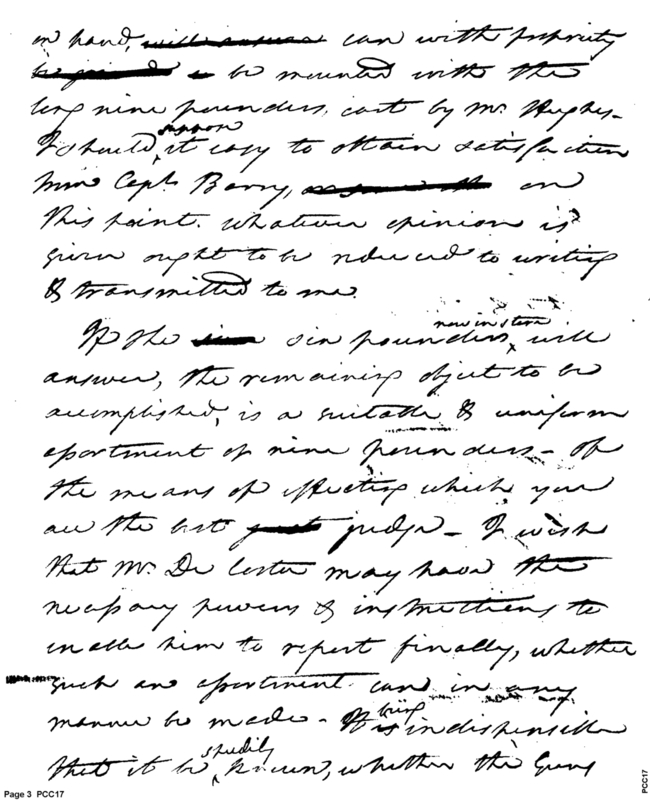 on hand, can with propriety
be mounted with the
long nine pounders, cast by Mr. Hughes-
I should, suppose it easy to obtain satisfaction
from Capt. Barry, on
this point. Whatever opinion is
given ought to be reduced to writing
& transmitted to me.
If the six pounders, now in store will
answer, the remaining object to be
accomplished, is a suitable & uniform
apartment of nine pounders - Of
the means of effecting which you
are the best judge - I wish
that Mr. De may have the
necessary powers & instructions to
enable him to report finally, whether
such an apartment can in any
manner be made - It being indispensible
that it be speedily known, whether the Guns
Page 3 PCC17
PCC17